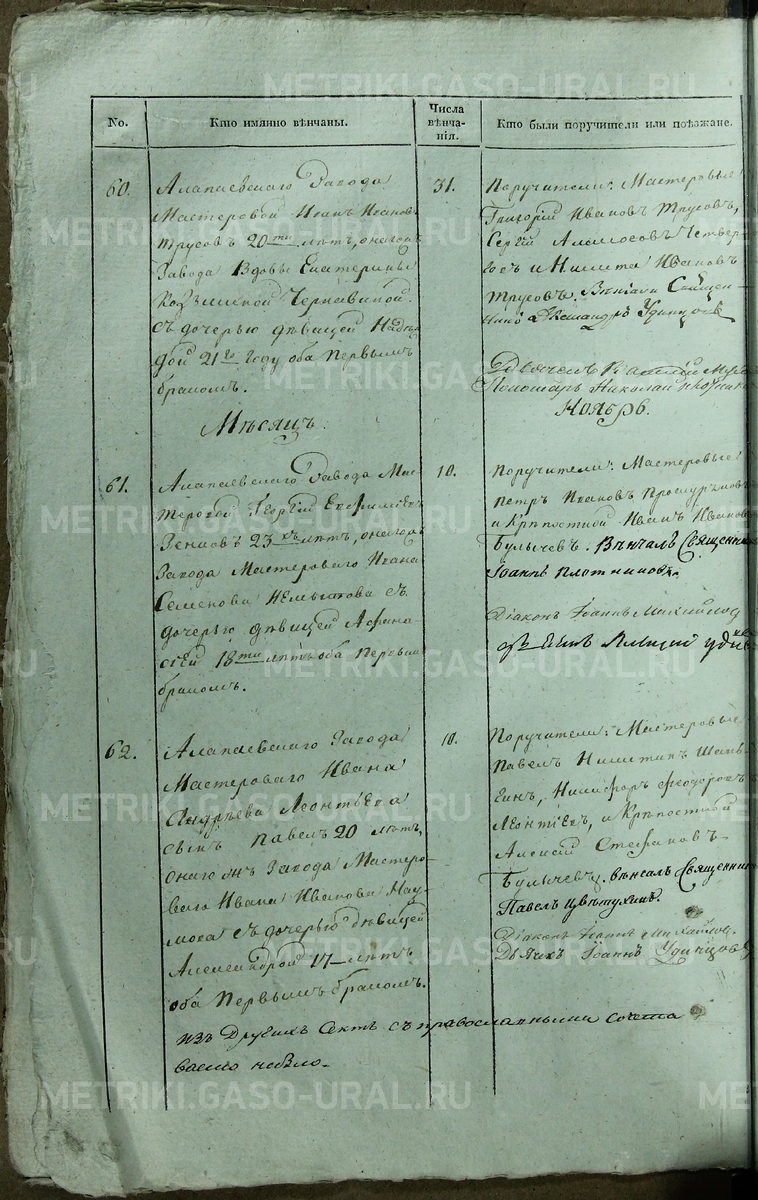 No.
Кто имянно вѣнчаны.
Числа вѣнча-
нія.
Кто были поручители или поѣзжане.
60.
Алапаевскаго Завода
Мастеровой Иванъ Ивановъ
Трусовъ 20ти лѣтъ, онагожъ
Завода Вдовы Екатерины
Козьминой Чернавиной
съ дочерью дѣвицей Надеж
дой 21го Году оба Первымъ
бракомъ.
31.
Поручители: Мастеровые
Григорій Ивановъ Трусовъ,
Сергій Четвер
и Никита Ивановъ
Трусовъ. Вѣнчали Священ-
Александръ Удинцовъ
Пономарь Николай
Мѣсяцъ
Ноябрь.
61.
Алапаевскаго Завода Мас
теровой Георгій Евфиміевъ
Зенковъ 23хъ лѣтъ, онагожъ
Завода Мастероваго Ивана
Семенова Немыткова съ
дочерью дѣвицей Афана
сіей 18ти лѣтъ оба Первымъ
бракомъ.
10.
Поручители: Мастеровые
Петръ Ивановъ Проскуряковъ
и Крѣпостной Иванъ Ивановъ
Булычевъ. Вѣнчалъ Священникъ
Іоаннъ Плотниковъ.
Діаконъ Іоаннъ
62.
Алапаевскаго Завода
Мастероваго Ивана
Андрѣева Леонтіева
сынъ Павелъ 20 лѣтъ,
онагожъ Завода Мастеро-
ваго Ивана Иванова Нау
мова съ дочерью дѣвицей
Александрой 17 лѣтъ
оба Первымъ бракомъ.
10.
Поручители: Мастеровые
Павелъ Никитинъ Шань-
гинъ, Никифоръ Феодоровъ
Леонтіевъ, и Крѣпостной
Алексій Стефановъ
Булычевъ. вѣнчалъ Священникъ
Павелъ Цвѣтухинъ.
Діаконъ Іоаннъ
Дьячекъ Іоаннъ Удинцовъ
изъ Другихъ Сектъ съ православными сочета
ваемо небыло.
METRIKI.GASO-URAL.RU